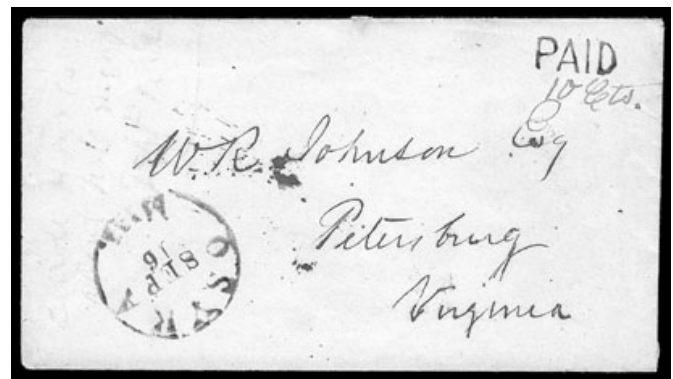 PAID
10 Cts.
W. R. Johnson Esq
Petersburg
Virginia
OSYKA
SEP
16